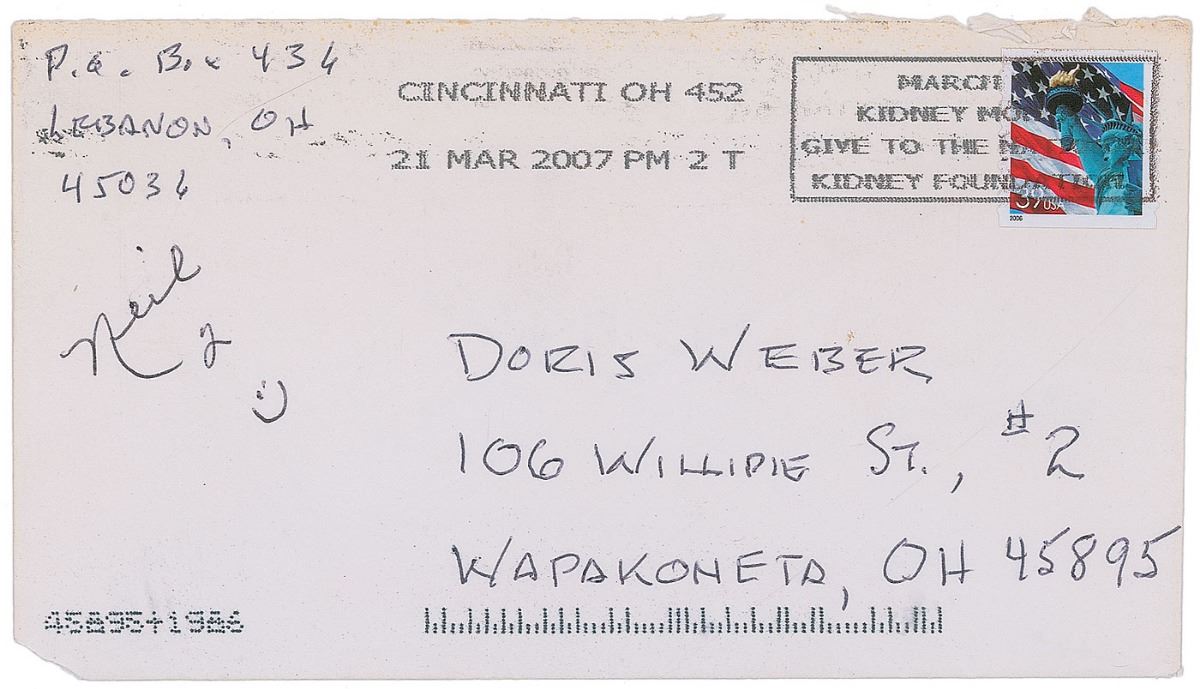 P.O. Box 436
LEBANON, OH
45036
CINCINNATI OH 452
21 MAR 2007 PM 2 T
MARCH
KIDNEY MO
GIVE TO THE NA
KIDNEY FOUNDATION
39 USA
2006
Neil
:)
DORIS WEBER
106 WILLIPIE ST., #2
WAPAKONETA, OH 45895
45895+1986